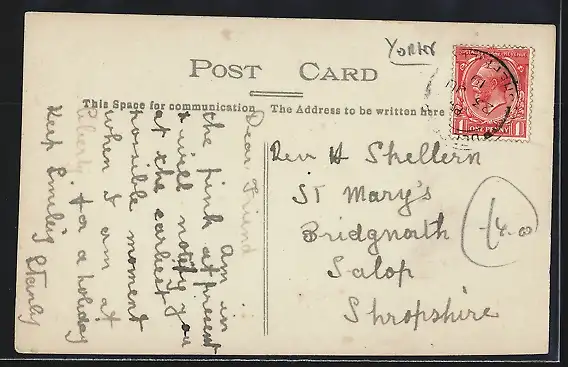 Yorks
POST CARD
This Space for communication
The Address to be written here
Dear Friend
Am in
the pink at present
& will notify you
at the earliest
possible moment
when I am at
liberty for a holiday
Keep Smiling Stanley
Rev H Shellern
St Mary's
Bridgnorth
Salop
Shropshire
ONE PENNY